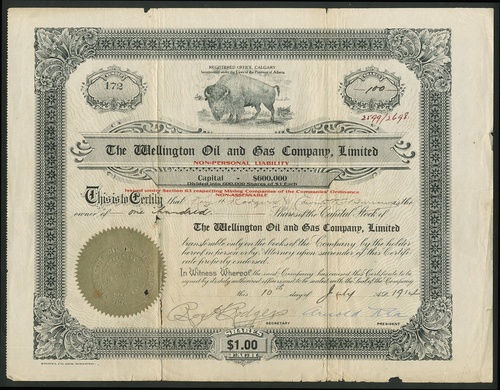 REGISTERED OFFICE, CALGARY
Incorporated under the Laws of the Province of Alberta
NUMBER
172
SHARES
100
2599/2698
The Wellington Oil and Gas Company, Limited
NON-PERSONAL LIABILITY
Capital - $600,000
Divided into 600,000 Shares of $1 Each
Issued under Section 63 respecting Mining Companies of the Companies' Ordinance
NON-ASSESSABLE
This is to Certify that
owner of one hundred Shares of the Capital Stock of
The Wellington Oil and Gas Company, Limited
transferable only on the books of the Company by the holder
hereof in person or by Attorney upon surrender of this Certifi-
cate properly endorsed.
In Witness Whereof the said Company has caused this Certificate to be
signed by its duly authorized officers and to be sealed with the Seal of the Company
this 10th day of July A.D. 1914
SECRETARY
PRESIDENT
SHARES
$1.00
EACH